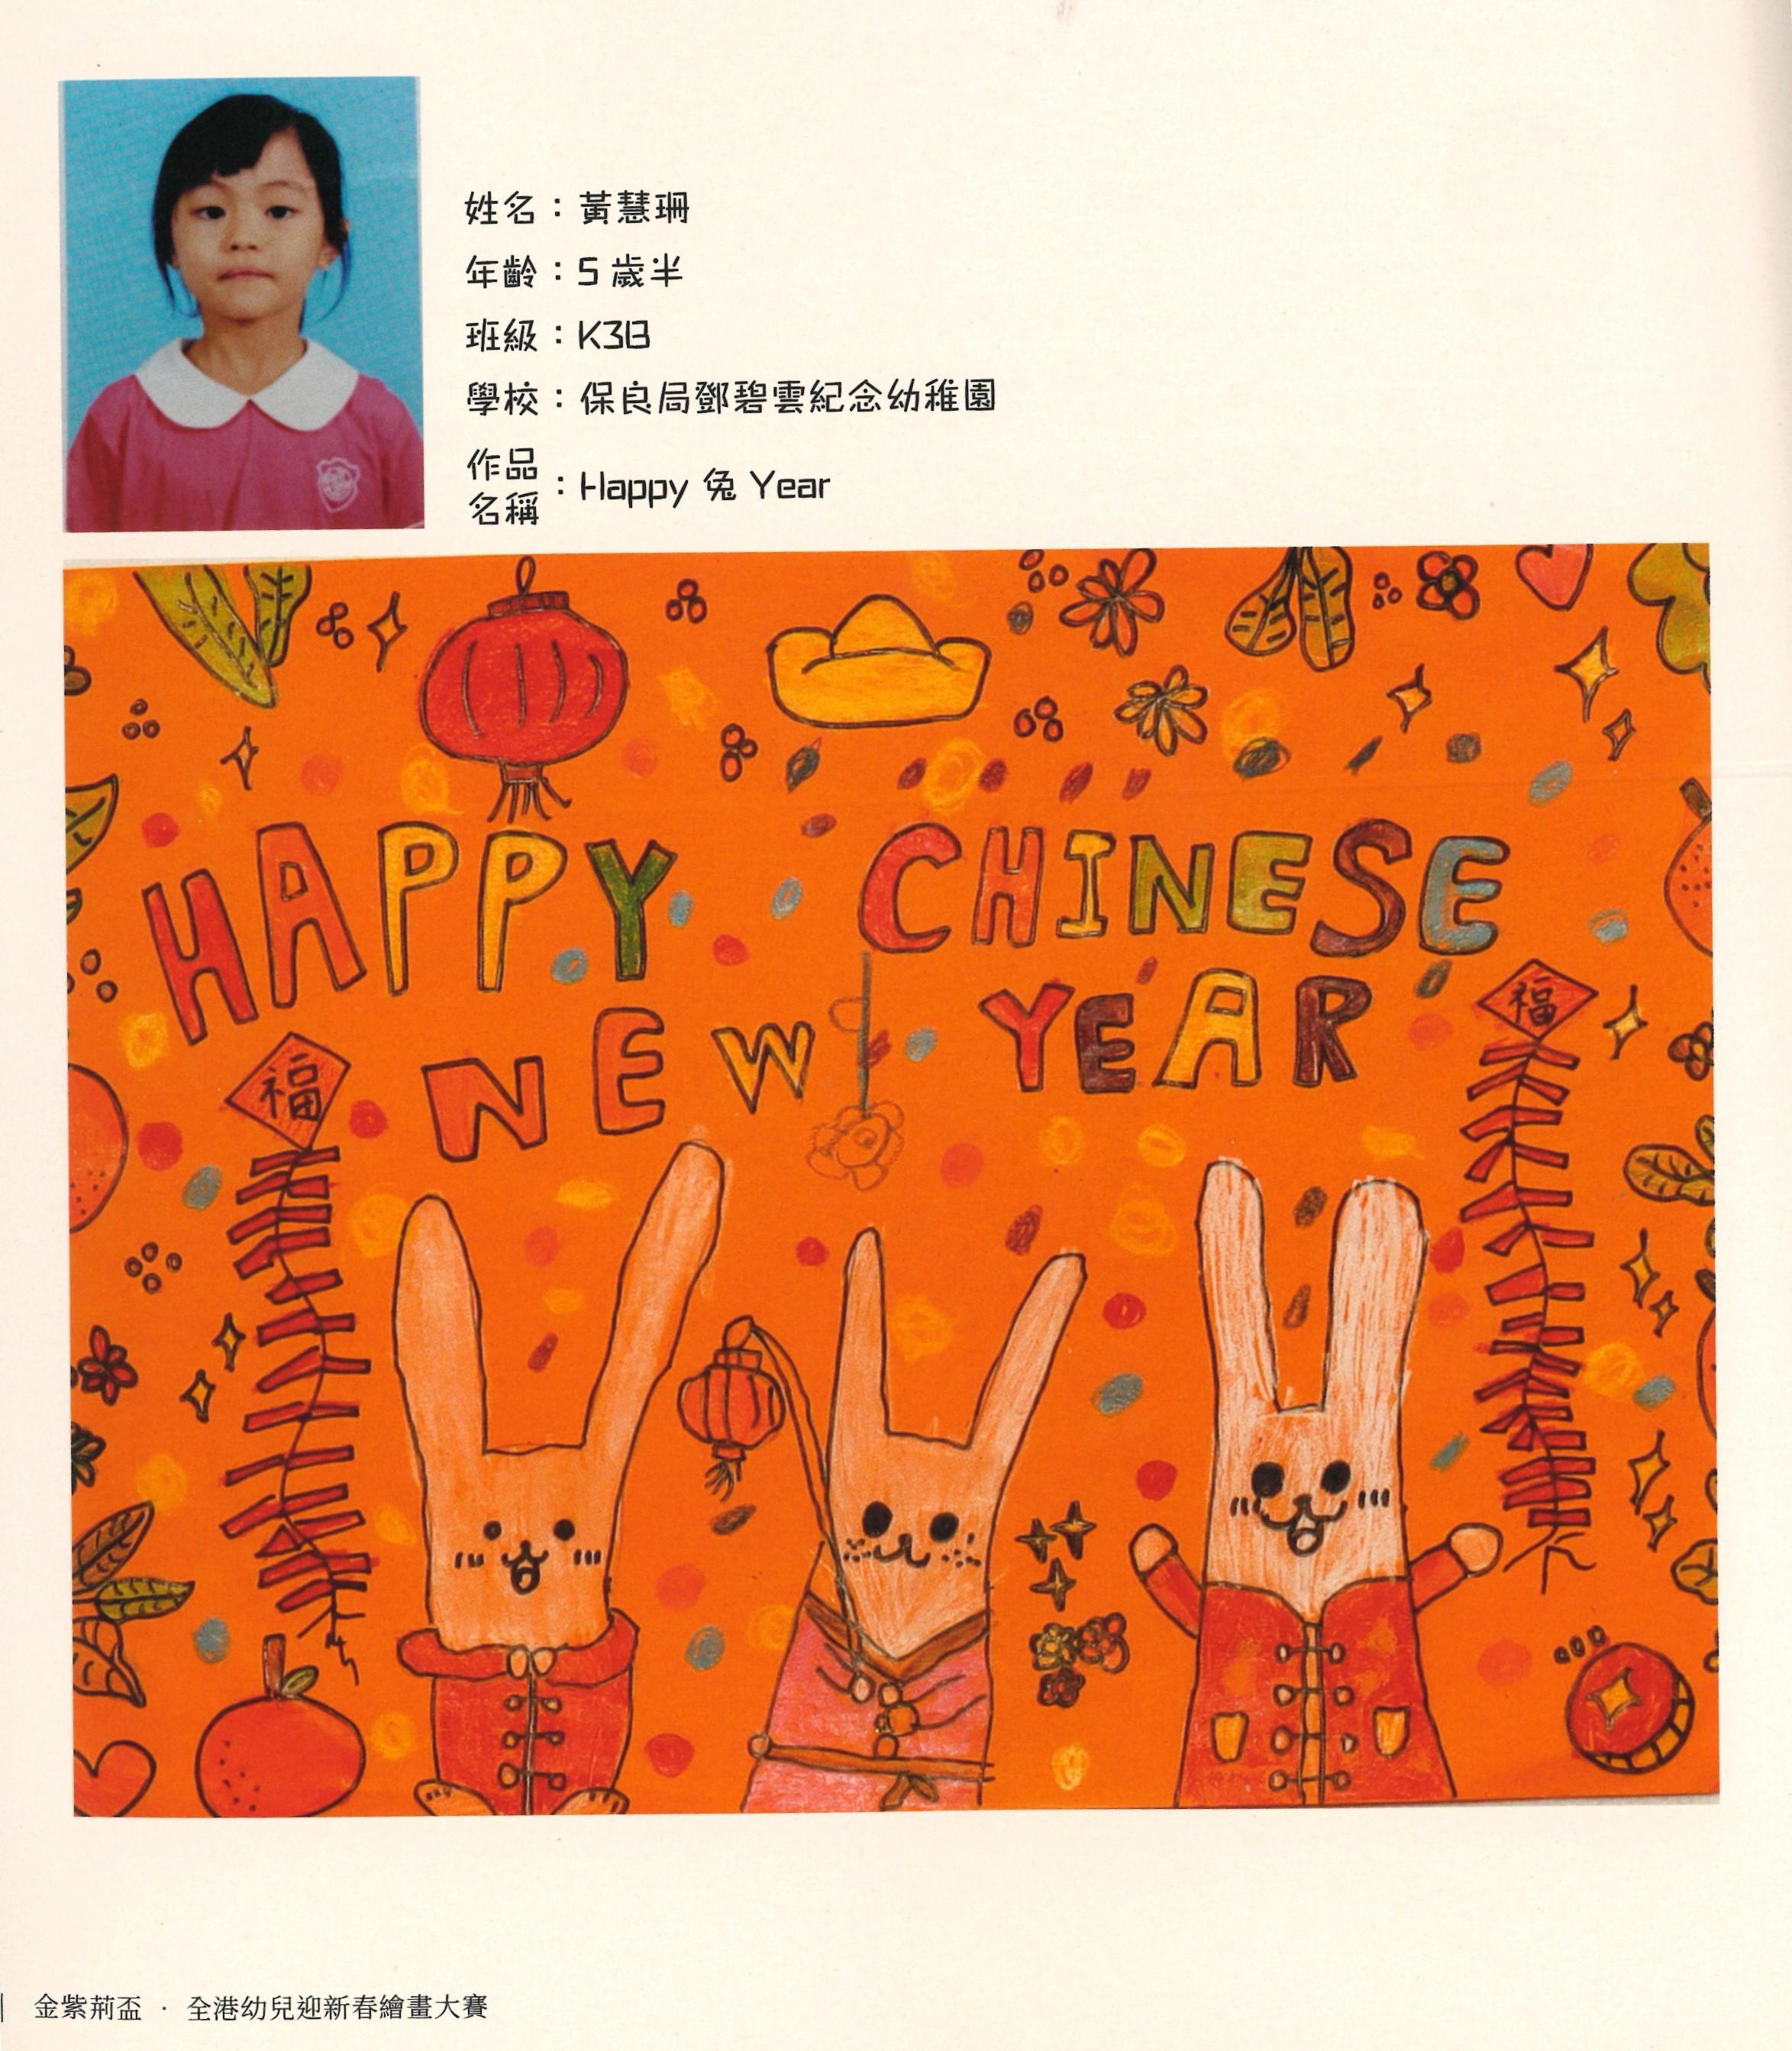 姓名：黃慧珊
年齡：5 歲半
班級：K3B
學校：保良局鄧碧雲紀念幼稚園
作品
名稱：Happy 兔 Year
HAPPY CHINESE
NEW YEAR
福
福
金紫荊盃 · 全港幼兒迎新春繪畫大賽